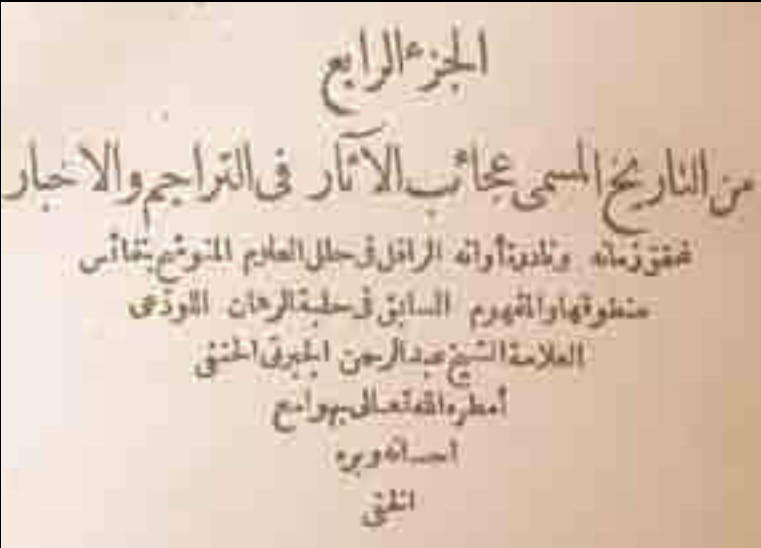 الجزء الرابع
من التاريخ المسمى عجائب الآثار في التراجم والاخبار
لمحقق زمانه ونادرة أوانه الرافل في حلل العلوم المتوشح بنفائس
منطوقها والمفهوم السابق في حلبة الرهان اللوذعى
العلامة الشيخ عبدالرحمن الجبرتى الحنفى
أمطره الله تعالى بهوامع
احسانه وبره
الخفى